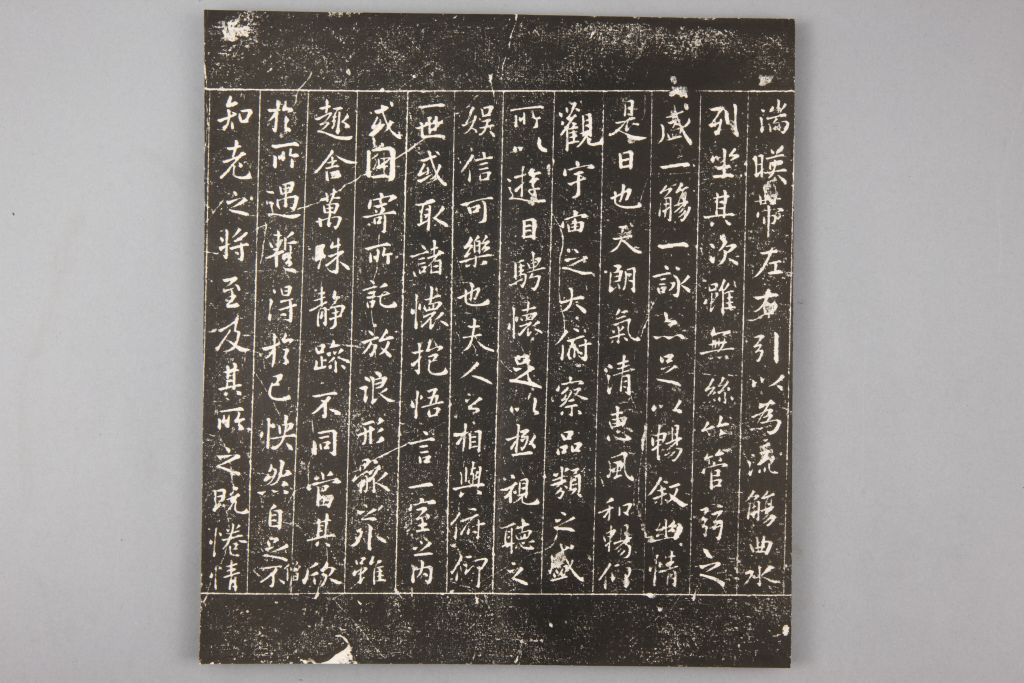 湍暎帶左右引以為流觴曲水
列坐其次雖無絲竹管弦之
盛一觴一詠亦足以暢叙幽情
是日也天朗氣清惠風和暢仰
觀宇宙之大俯察品類之盛
所以遊目騁懷足以極視聽之
娛信可樂也夫人之相與俯仰
一世或取諸懷抱悟言一室之內
或因寄所託放浪形骸之外雖
趣舍萬殊靜躁不同當其欣
於所遇暫得於己怏然自足不
知老之將至及其所之既惓情